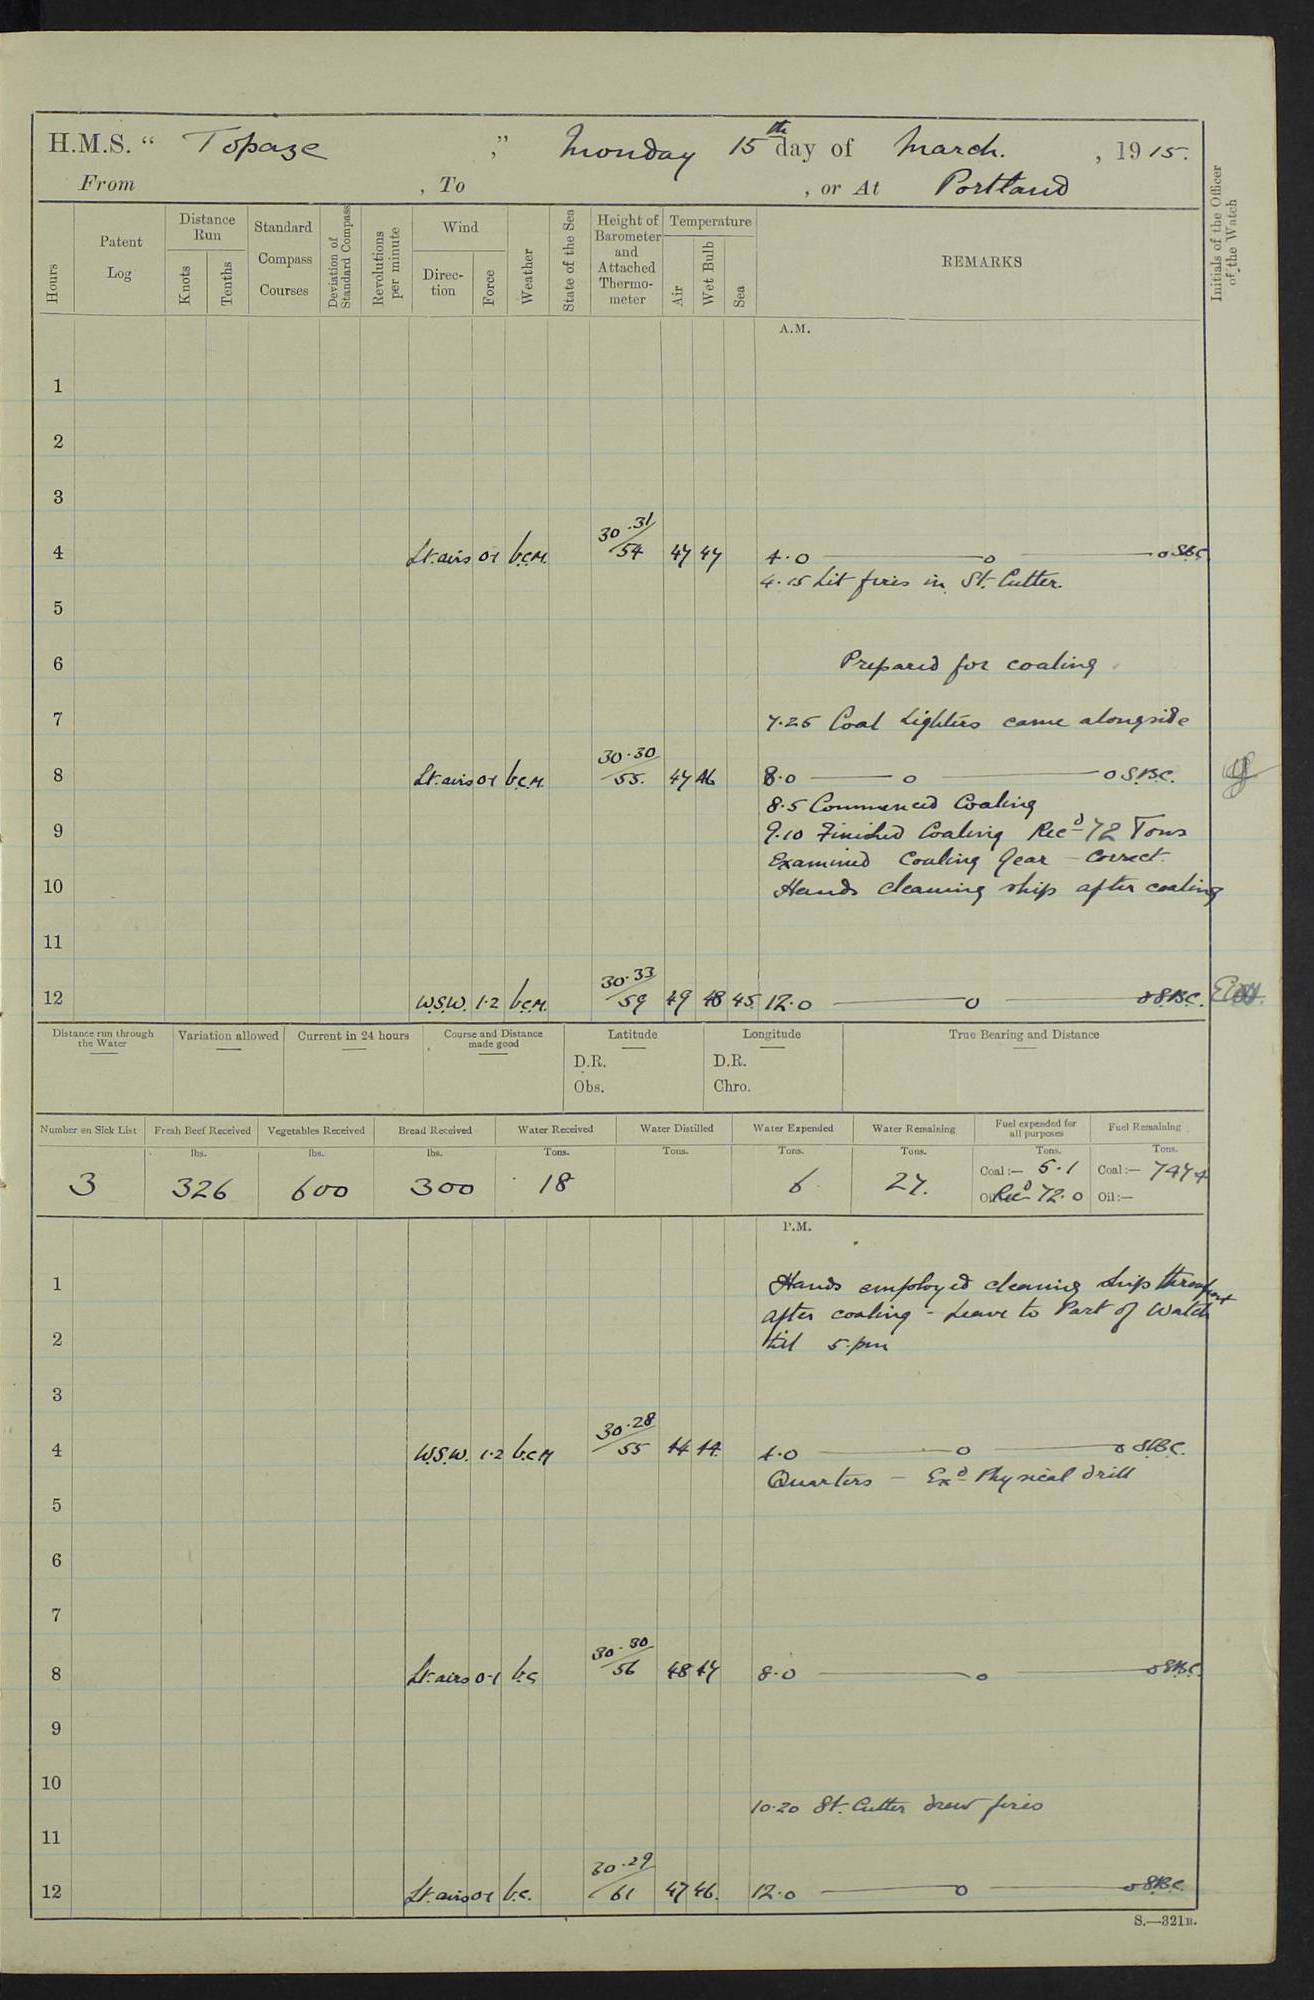 H.M.S. " Topaze ," Monday 15th day of March. , 1915.
From , To , or At Portland
Hours
Patent Log
Distance Run
Knots
Tenths
Standard Compass Courses
Deviation of Standard Compass
Revolutions per minute
Wind
Direc-tion
Force
Weather
State of the Sea
Height of Barometer and Attached Thermo-meter
Temperature
Air
Wet Bulb
Sea
REMARKS
Initials of the Officer of the Watch
A.M.
1
2
3
4 Lt. airs 0-1 b.c.m. 30.31/54 47 47 4.0 o o S.B.C.
4.15 Lit fires in St. Cutter.
5
6 Prepared for coaling
7 7.25 Coal Lighters came alongside
8 Lt. airs 0-1 b.c.m. 30.30/55. 47 46 8.0 o o S.B.C.
8.5 Commenced Coaling
9 9.10 Finished Coaling Recd 72 Tons
Examined Coaling Gear - Correct.
10 Hands cleaning ship after coaling
11
12 W.S.W. 1.2 b.c.m. 30.33/59 49 48 45 12.0 o o S.B.C.
Distance run through the Water
Variation allowed
Current in 24 hours
Course and Distance made good
Latitude
D.R.
Obs.
Longitude
D.R.
Chro.
True Bearing and Distance
Number on Sick List
Fresh Beef Received
Vegetables Received
Bread Received
Water Received
Water Distilled
Water Expended
Water Remaining
Fuel expended for all purposes
Fuel Remaining
lbs. lbs. lbs. Tons. Tons. Tons. Tons. Tons. Tons.
3 326 600 300 18 6 27. Coal:— 5.1 Coal:— 747.4
Oil Recd 72.0 Oil:—
P.M.
1 Hands employed cleaning ship throughout
after coaling - Leave to Part of Watch
2 till 5. pm
3
4 W.S.W. 1.2 b.c.m 30.28/55 44 44 4.0 o o S.B.C.
Quarters — Exd Physical drill
5
6
7
8 Lt. airs 0-1 b.c 30.30/56 48 47 8.0 o o S.B.C.
9
10
10.20 St. Cutter drew fires
11
12 Lt. airs 0-1 b.c. 30.29/61 47 46. 12.0 o o S.B.C.
S.—321B.